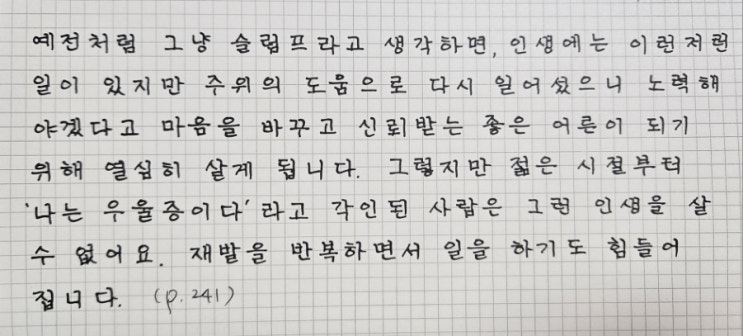 예전처럼 그냥 슬럼프라고 생각하면, 인생에는 이런저런
일이 있지만 주위의 도움으로 다시 일어섰으니 노력해
야겠다고 마음을 바꾸고 신뢰받는 좋은 어른이 되기
위해 열심히 살게 됩니다. 그렇지만 젊은 시절부터
'나는 우울증이다'라고 각인된 사람은 그런 인생을 살
수 없어요. 재발을 반복하면서 일을 하기도 힘들어
집니다. (p.241)